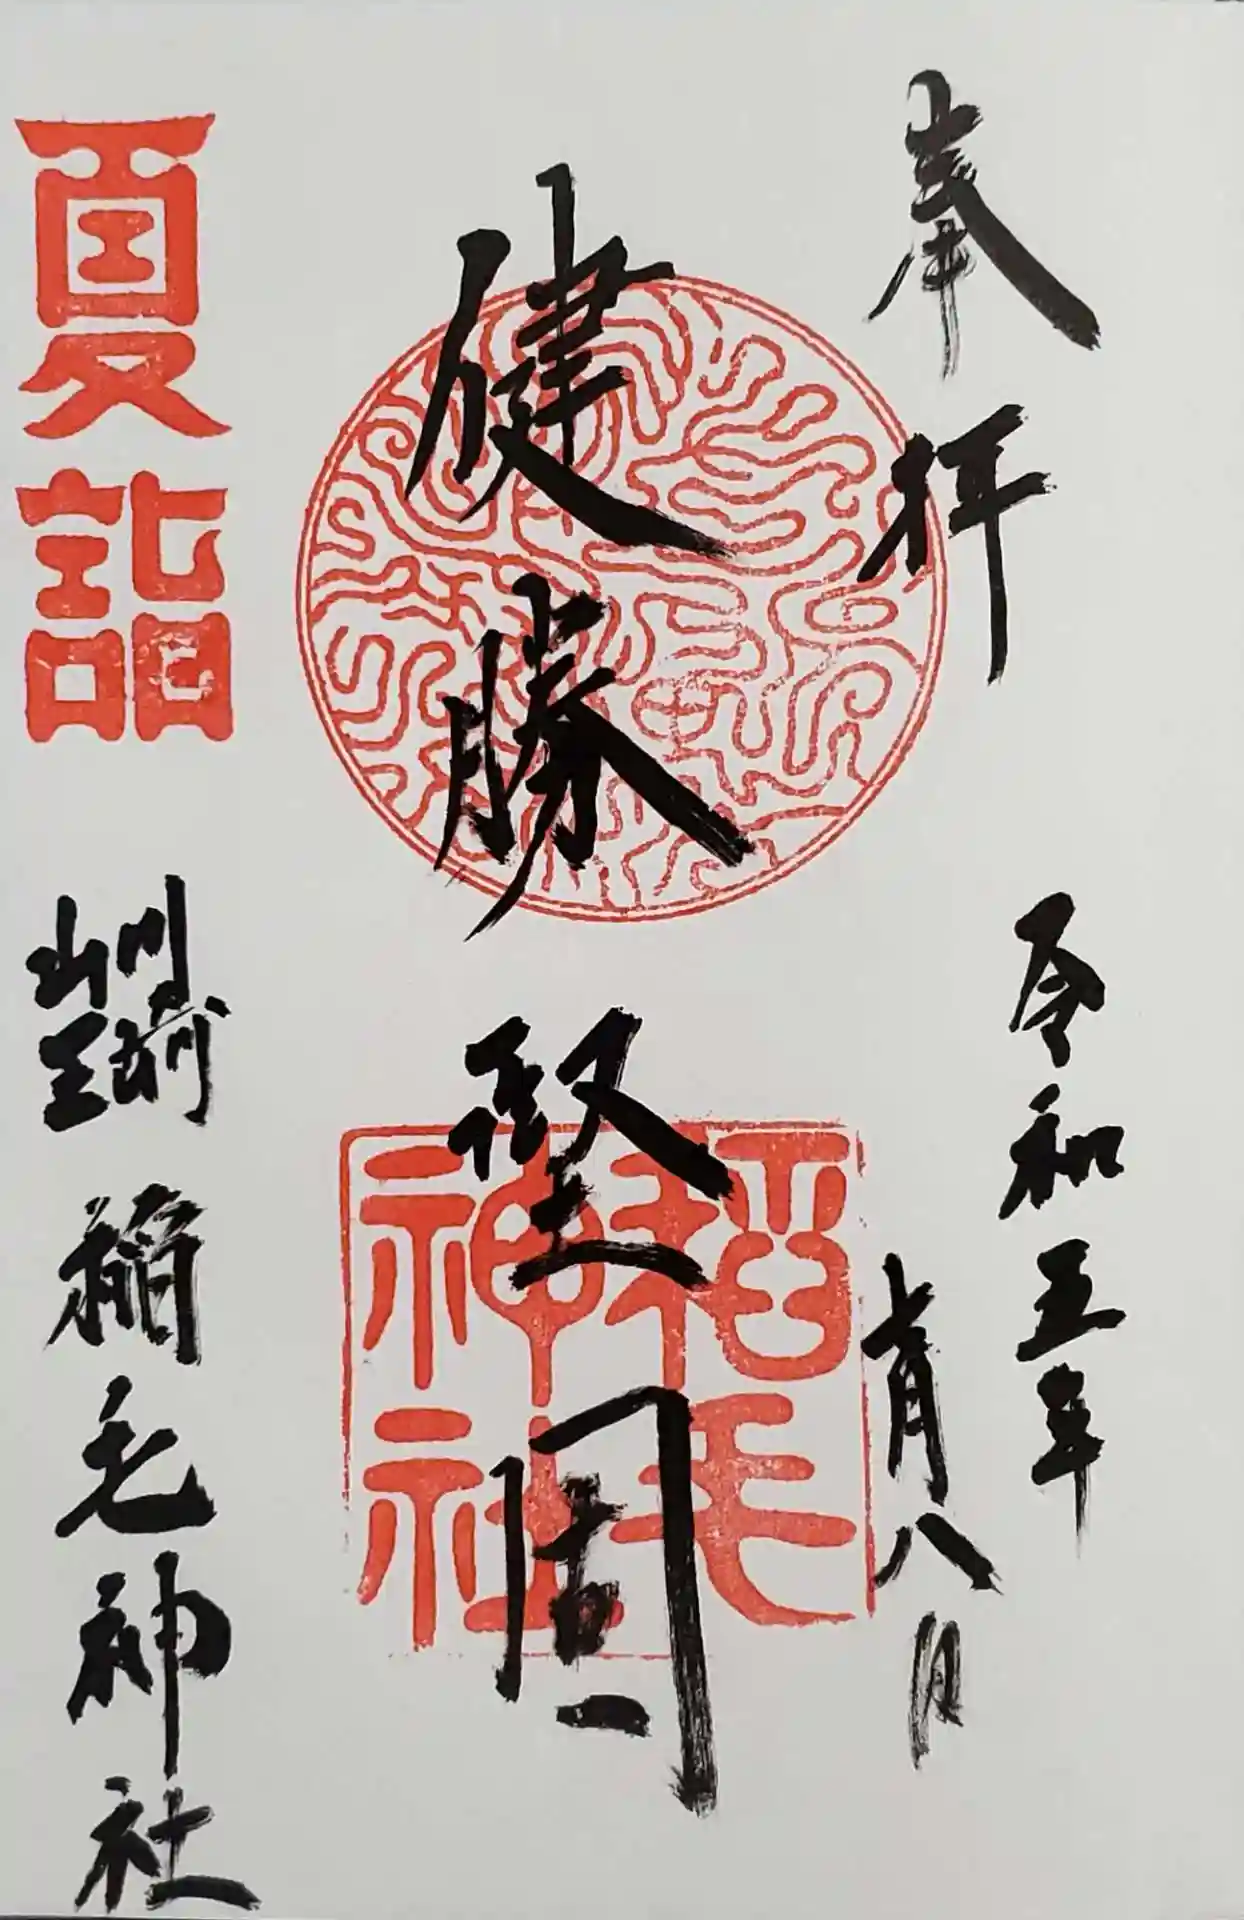 奉拝
令和五年
七月八日
健勝堅固
稲毛
神社
夏詣
川崎
山王
稲毛神社